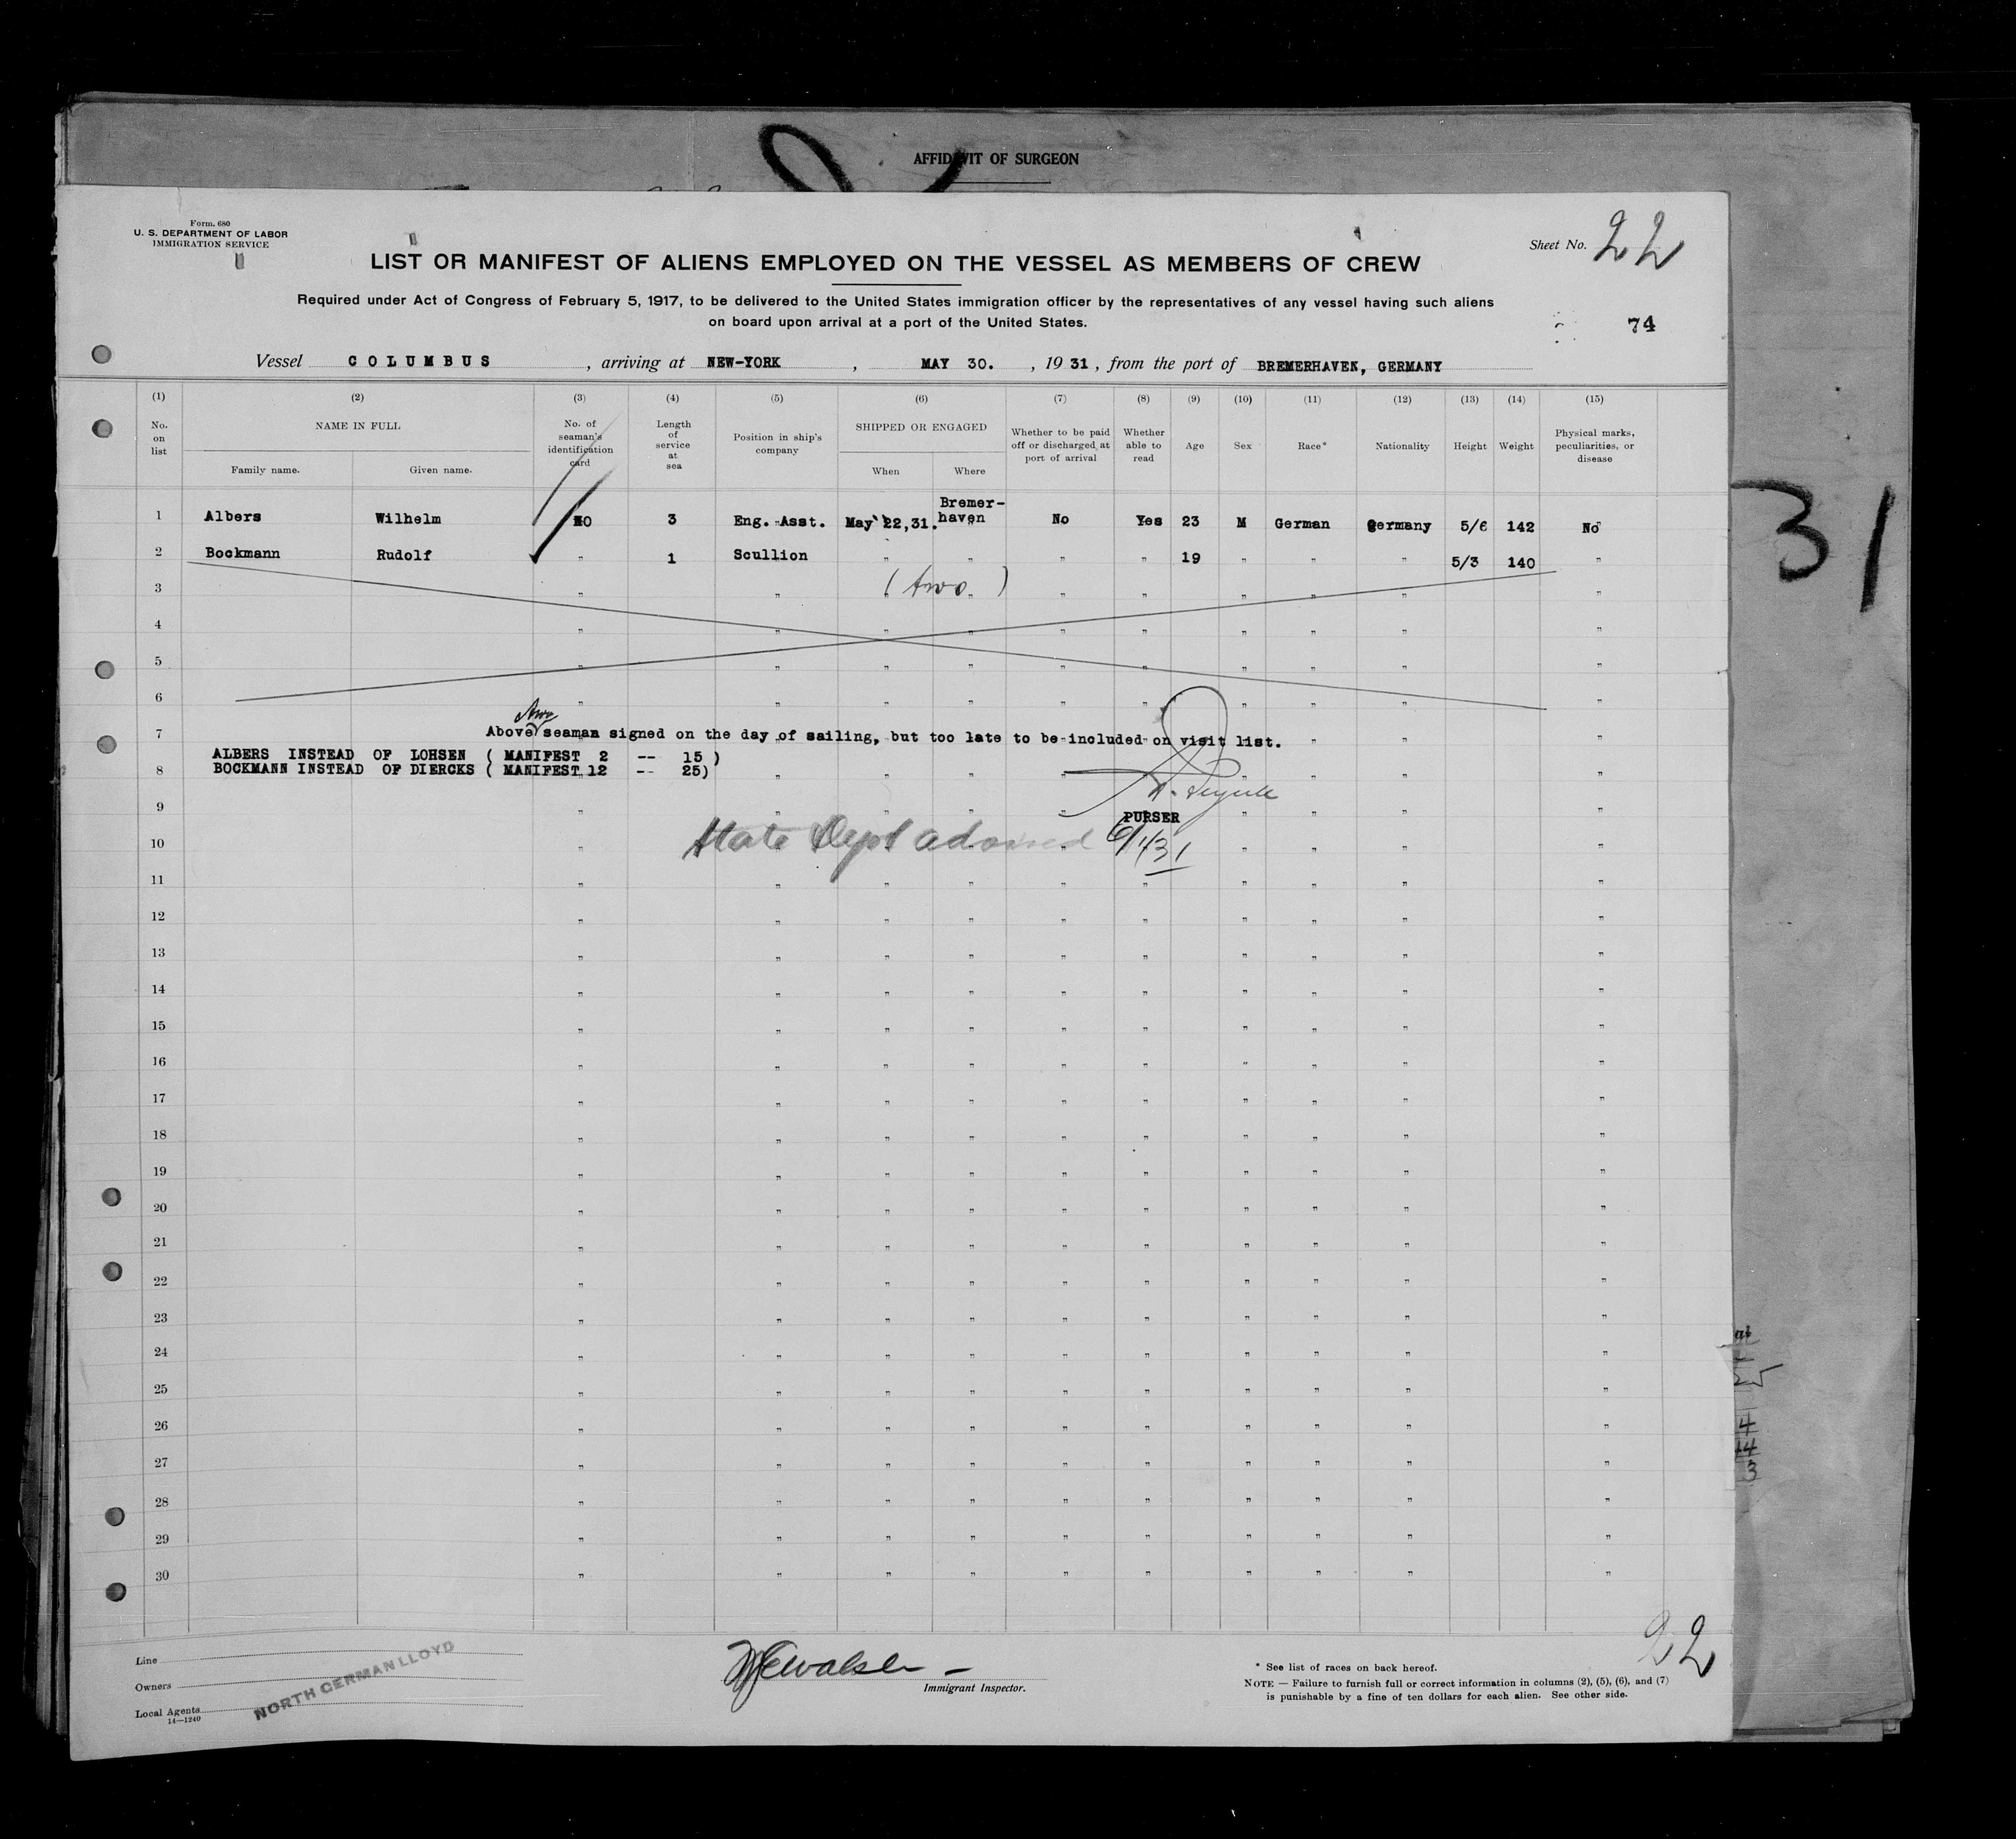 AFFIDAVIT OF SURGEON
Form. 680
U. S. DEPARTMENT OF LABOR
IMMIGRATION SERVICE
Sheet No. 22
LIST OR MANIFEST OF ALIENS EMPLOYED ON THE VESSEL AS MEMBERS OF CREW
Required under Act of Congress of February 5, 1917, to be delivered to the United States immigration officer by the representatives of any vessel having such aliens
on board upon arrival at a port of the United States.
74
Vessel COLUMBUS , arriving at NEW-YORK , MAY 30. , 1931, from the port of BREMERHAVEN, GERMANY
(1) (2) (3) (4) (5) (6) (7) (8) (9) (10) (11) (12) (13) (14) (15)
No. on list NAME IN FULL Family name. Given name. No. of seaman's identification card Length of service at sea Position in ship's company SHIPPED OR ENGAGED When Where Whether to be paid off or discharged at port of arrival Whether able to read Age Sex Race* Nationality Height Weight Physical marks, peculiarities, or disease
1 Albers Wilhelm NO 3 Eng. Asst. May 22,31. Bremer-haven No Yes 23 M German Germany 5/6 142 No
2 Bockmann Rudolf " 1 Scullion " " " " 19 " " " 5/3 140 "
3 " " " (two) " " " " " " "
4 " " " " " " " " " "
5 " " " " " " " " " "
6 " " " " " " " " " "
two
7 Above seaman signed on the day of sailing, but too late to be included on visit list. " " "
ALBERS INSTEAD OF LOHSEN ( MANIFEST 2 -- 15 )
8 BOCKMANN INSTEAD OF DIERCKS ( MANIFEST 12 -- 25) " " " " " " " "
9 " " " " " PURSER " " " "
10 " State Dept advised 6/1/31 " " " "
11 " " " " " " " " " "
12 " " " " " " " " " "
13 " " " " " " " " " "
14 " " " " " " " " " "
15 " " " " " " " " " "
16 " " " " " " " " " "
17 " " " " " " " " " "
18 " " " " " " " " " "
19 " " " " " " " " " "
20 " " " " " " " " " "
21 " " " " " " " " " "
22 " " " " " " " " " "
23 " " " " " " " " " "
24 " " " " " " " " " "
25 " " " " " " " " " "
26 " " " " " " " " " "
27 " " " " " " " " " "
28 " " " " " " " " " "
29 " " " " " " " " " "
30 " " " " " " " " " "
31
4
44
3
22
Line
Owners
Local Agents
14—1240
NORTH GERMAN LLOYD
Immigrant Inspector.
* See list of races on back hereof.
NOTE — Failure to furnish full or correct information in columns (2), (5), (6), and (7)
is punishable by a fine of ten dollars for each alien. See other side.